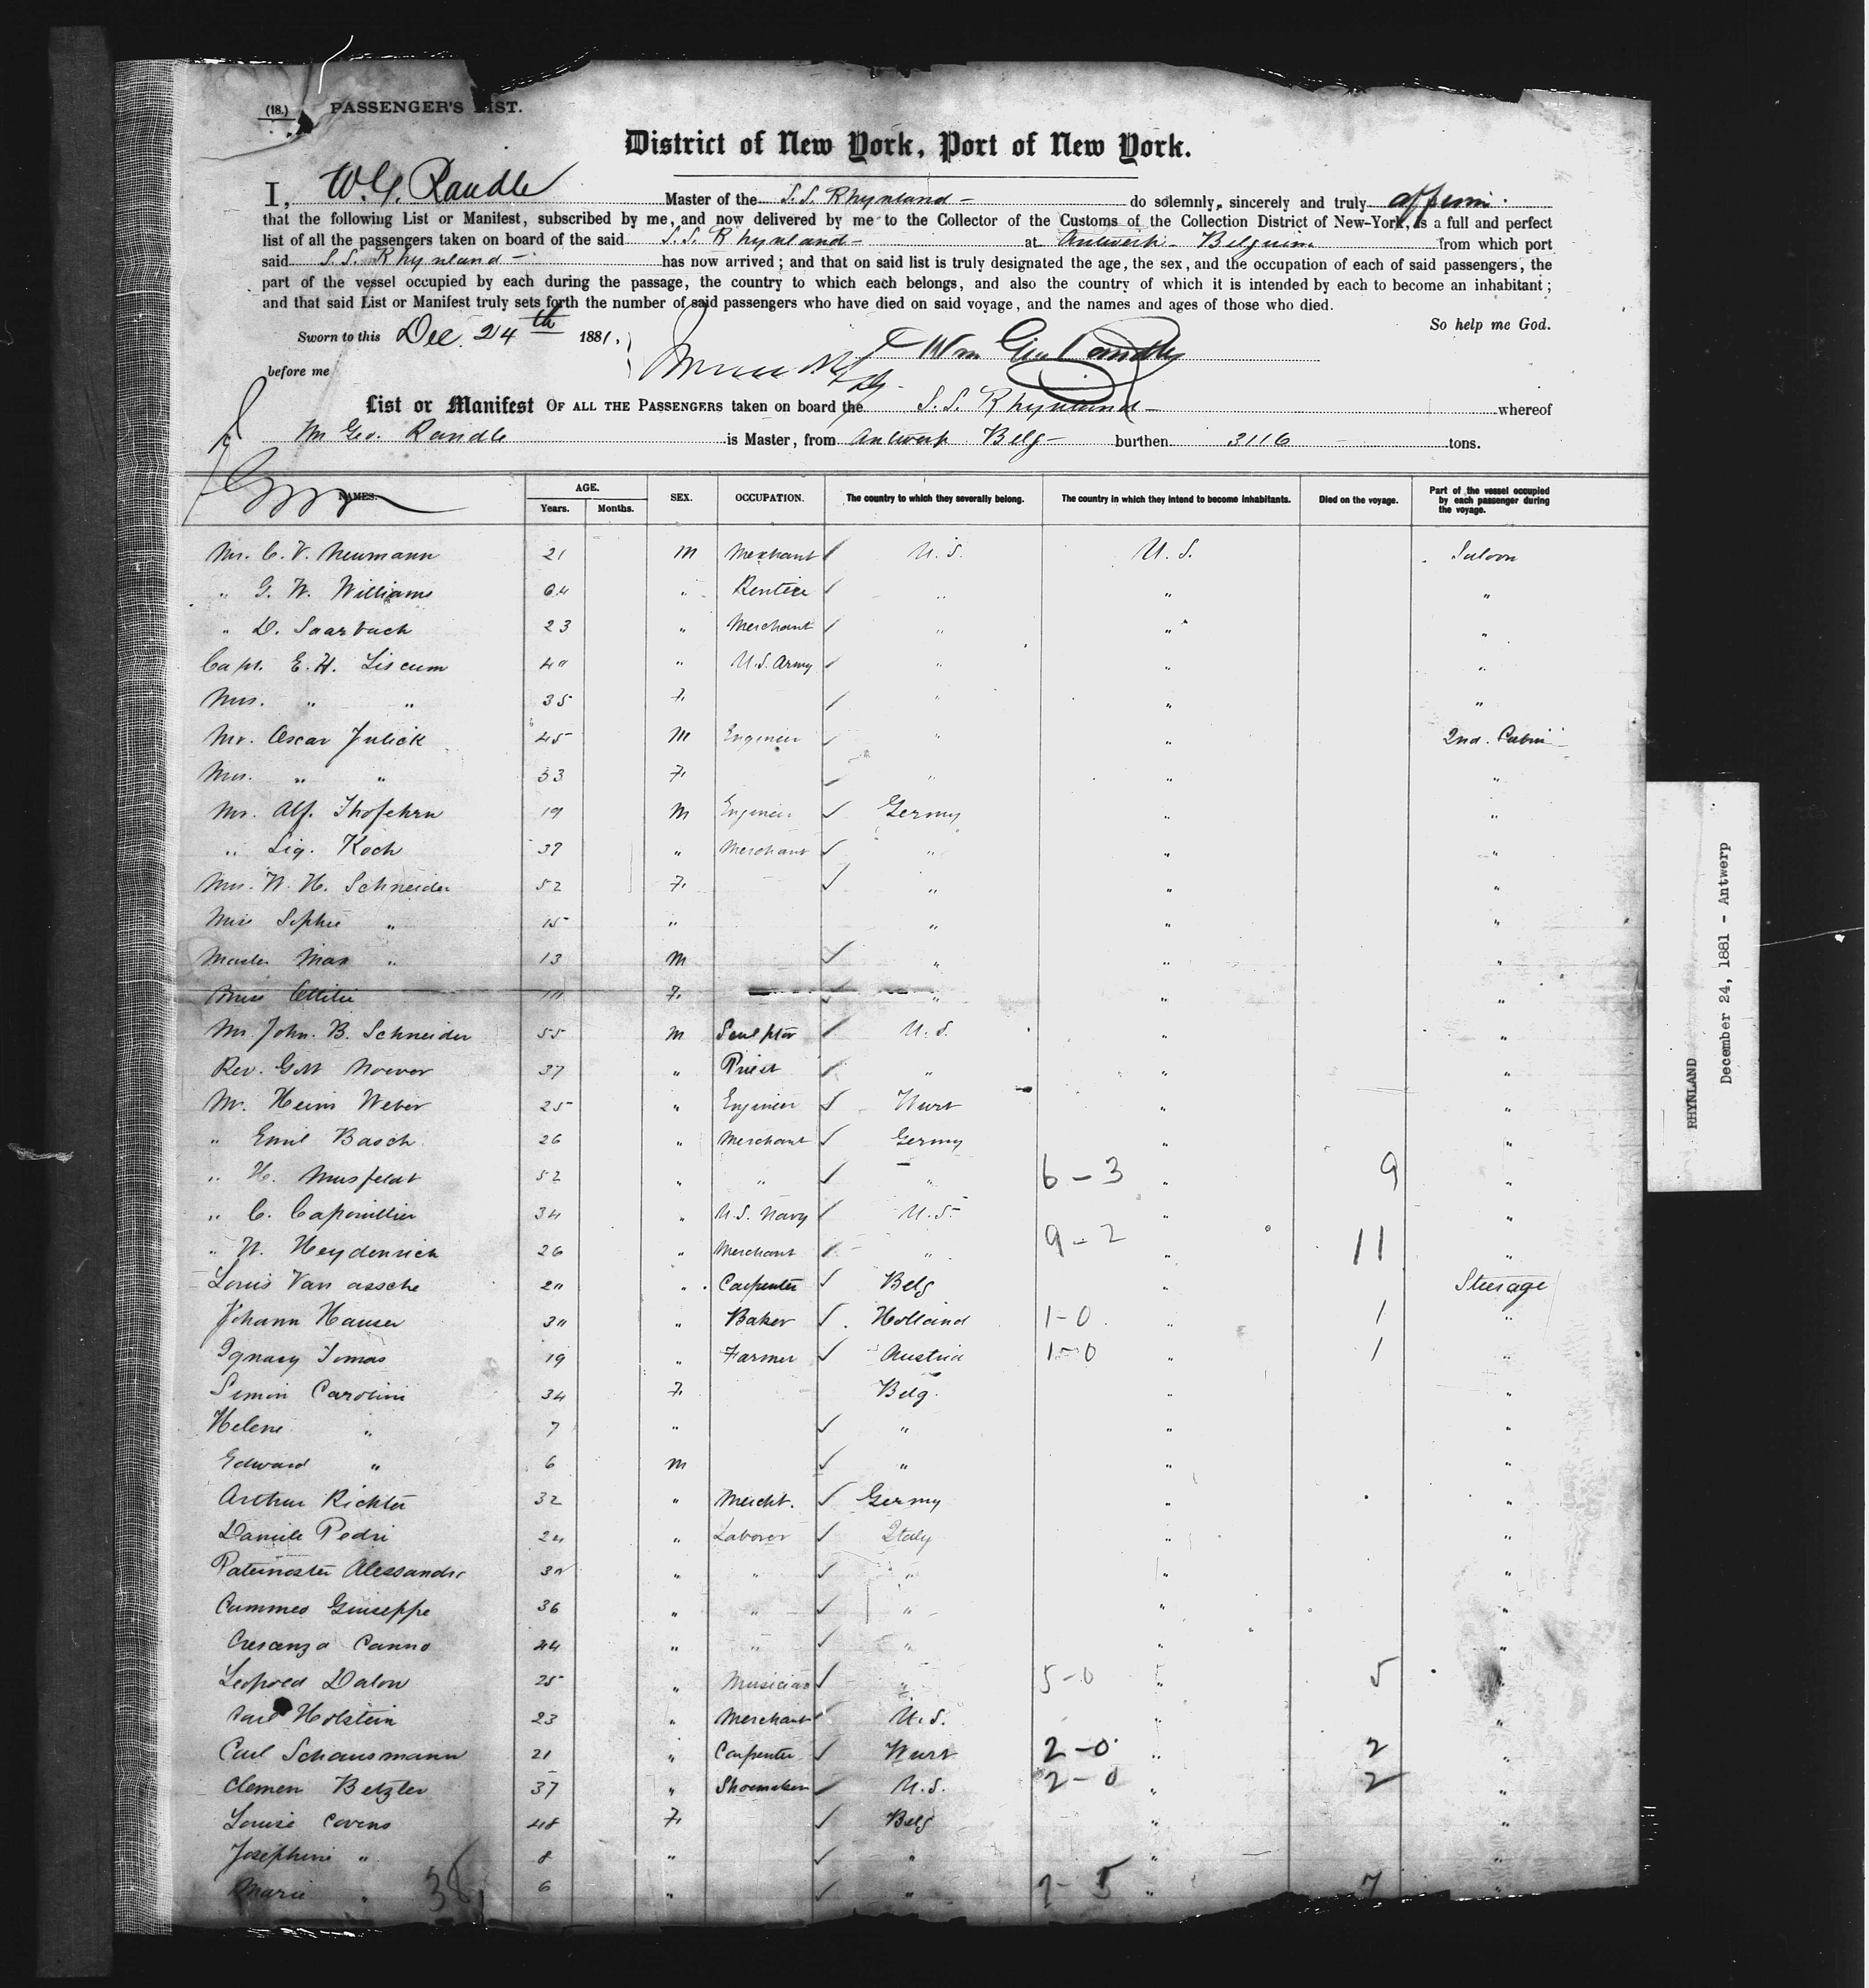 (18.) PASSENGER'S LIST.
District of New York, Port of New York.
I, W.G. Randle Master of the S.S. Rhynland - do solemnly, sincerely and truly affirm.
that the following List or Manifest, subscribed by me, and now delivered by me to the Collector of the Customs of the Collection District of New-York, is a full and perfect
list of all the passengers taken on board of the said S.S. Rhynland - at Antwerp - Belgium from which port
said S.S. Rhynland - has now arrived; and that on said list is truly designated the age, the sex, and the occupation of each of said passengers, the
part of the vessel occupied by each during the passage, the country to which each belongs, and also the country of which it is intended by each to become an inhabitant;
and that said List or Manifest truly sets forth the number of said passengers who have died on said voyage, and the names and ages of those who died.
So help me God.
Sworn to this Dec. 24th 1881,
Wm Geo Randle
before me
List or Manifest OF ALL THE PASSENGERS taken on board the S.S. Rhynland - whereof
Wm Geo. Randle is Master, from Antwerp Belg - burthen 3116 tons.
NAMES. AGE. Years. Months. SEX. OCCUPATION. The country to which they severally belong. The country in which they intend to become inhabitants. Died on the voyage. Part of the vessel occupied by each passenger during the voyage.
Mr. C. V. Neumann 21 M Merchant U.S. U.S. Saloon
" G. W. Williams 64 " " " "
" D. Saarbach 23 " Merchant " " "
Capt. E. H. Liscum 40 " U.S. Army " " "
Mrs. " " 35 F. " " "
Mr. Oscar Julick 45 M Engineer " " 2nd. Cabin
Mrs. " " 33 F. " " "
Mr. Alf. Thofehrn 19 M Engineer Germy " "
" Sig. Koch 37 " Merchant " " "
Mrs. W. H. Schneider 52 F. " " "
Miss Sophie " 15 " " " "
Master Max " 13 M " " "
Miss Ottilie 10 F. " " "
Mr. John. B. Schneider 55 M Sculptor U.S. " "
Rev. " Priest " " "
Mr. Heinr Weber 25 " Engineer Wurt " "
" Emil Basch 26 " Merchant Germy " "
" H. Musfeldt 52 " " " 6-3 " 9 "
" C. 34 " U.S. Navy U.S. " "
" W. Heydenrich 26 " Merchant " 9-2 " 11 "
Louis Van assche 20 " Carpenter Belg " Steerage
Johann Hauser 30 " Baker Holland 1-0 " 1 "
Ignacy Tomas 19 " Farmer Austria 1-0 " 1 "
Simon Carolini 34 F. Belg. " "
Helene " 7 " " " "
Edward " 6 M " " "
Arthur Richter 32 " Mercht. Germy " "
Daniele Pedri 24 " Laborer Italy " "
Paternoster Alessandro 30 " " " " "
Cammeo Giuseppe 36 " " " " "
Crescenzo Canno 44 " " " " "
Leopold Dalon 25 " Musician " 5-0 " 5 "
Carl Holstein 23 " Merchant U.S. " "
Carl Schausmann 21 " Carpenter Wurt 2-0 " 2 "
Clemen Betzler 37 " Shoemaker U.S. 2-0 " 2 "
Louise Covens 48 F. Belg " "
Josephine " 8 " " " "
Marie " 6 " " 2-5 " 7 "
38
RHYNLAND
December 24, 1881 - Antwerp